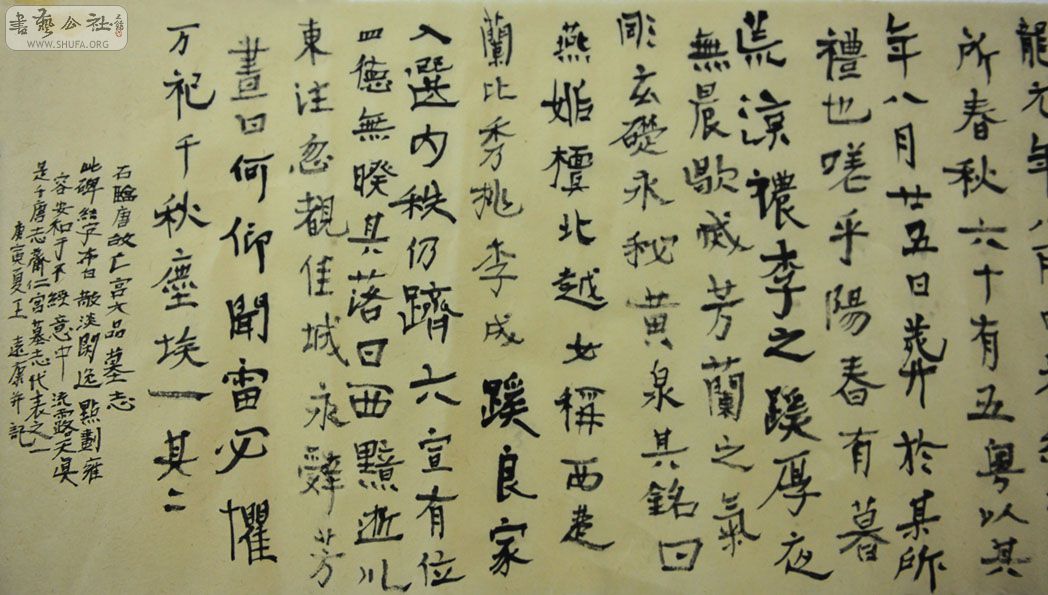 書藝公社
WWW.SHUFA.ORG
龍元年八
所春秋六十有五粵以其
年八月廿五日葬於某所
禮也嗟乎陽春有暮
荒涼禯李之蹊厚夜
無晨歇滅芳蘭之氣
彫玄礎永秘黃泉其銘曰
燕姬檀北越女稱西楚
蘭比秀桃李成蹊良家
入選內秩仍躋六宣有位
四德無睽其落日西黯逝川
東注忽覩佳城永辭芳
晝日何仰聞雷必懼
万祀千秋塵埃一其二
石臨唐故亡宮六品墓志
此碑結字本自散淡閑逸點劃雍
容安和于不經意中流露天真
是千唐志齋亡宮墓志代表之一
庚寅夏王遠康并記